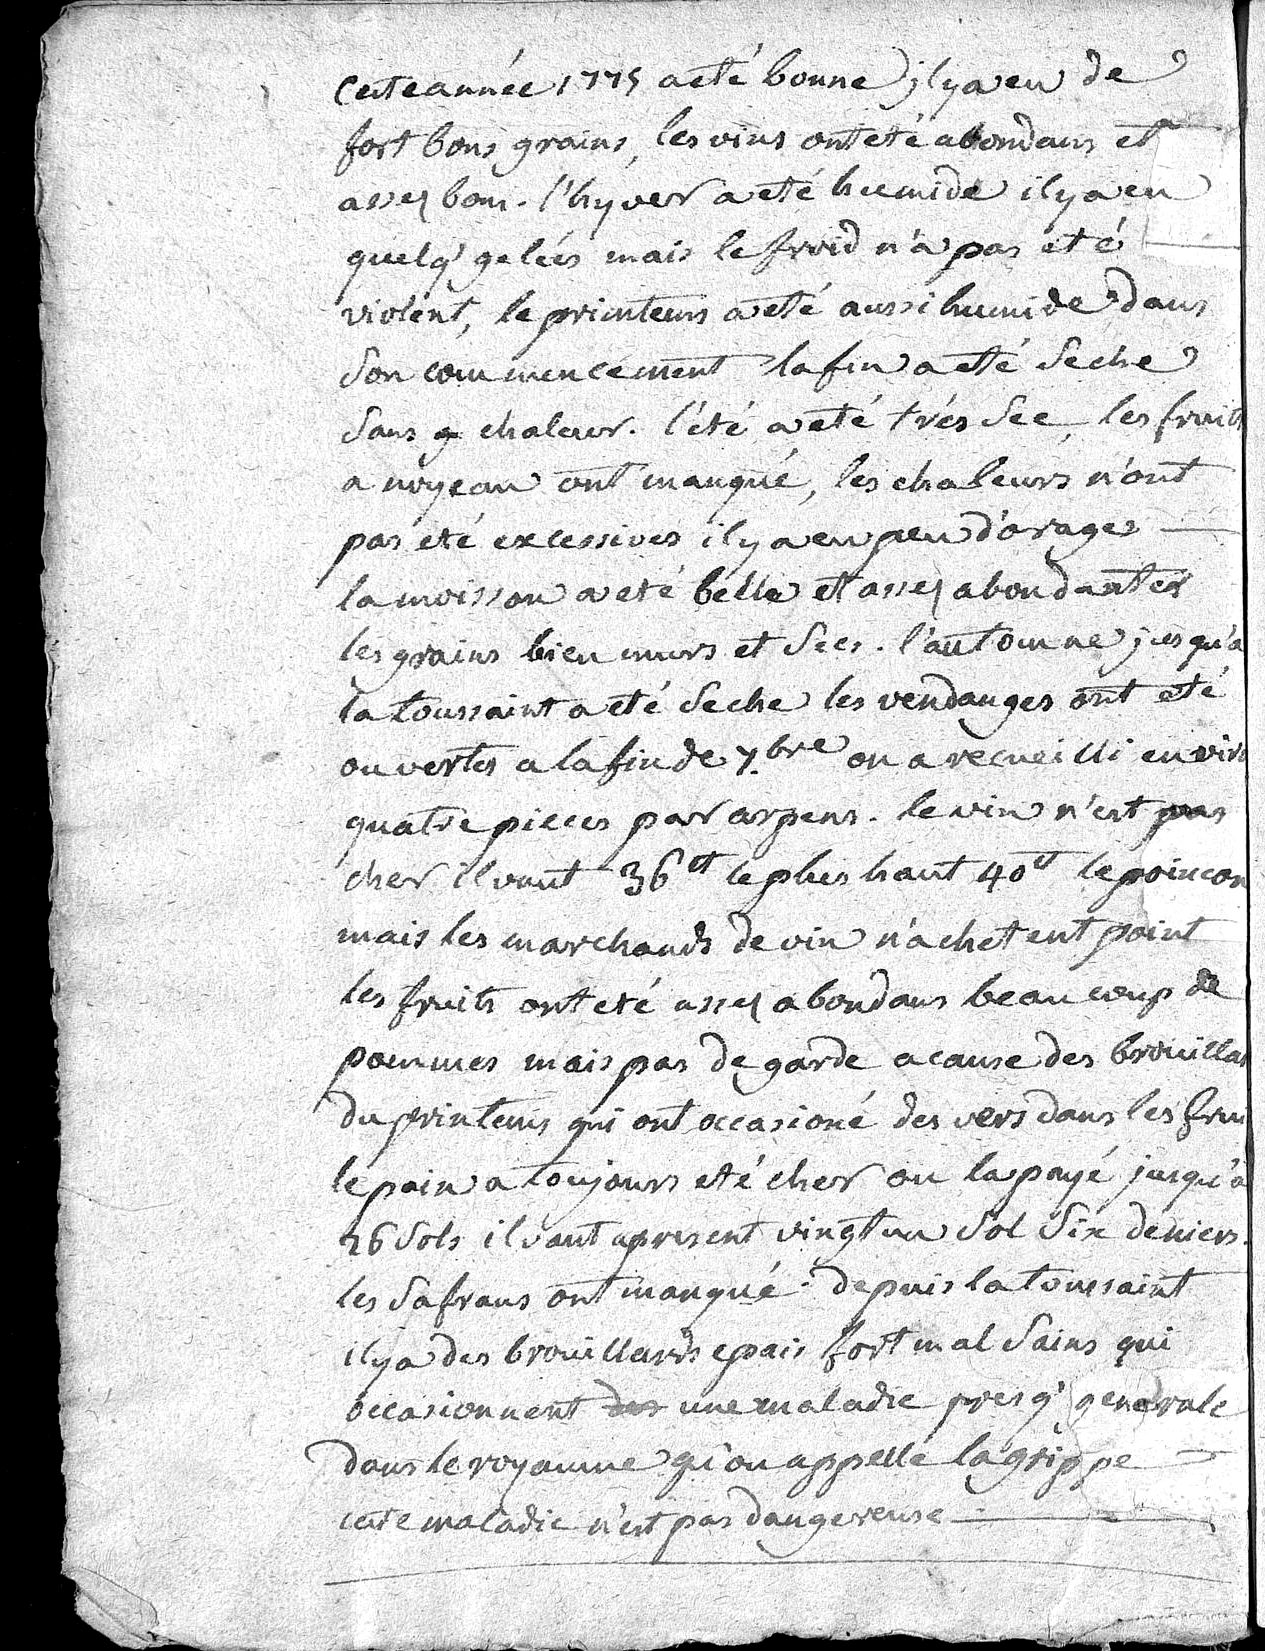 Cette année 1775 a eté bonne il y a eu de
fort bons grains, les vins ont eté abondans et
assez bons. l'hyver a eté humide il y a eu
quelq' gelées mais le froid n'a pas eté
violent, le printems a eté aussi humide dans
son commencement la fin a eté seche
sans gde chaleur. l'été a eté trés sec, les fruits
a noyeau ont manqué, les chaleurs n'ont
pas eté excessives il y a eu peu d'orages
la moisson a eté belle et assez abondantes
les grains bien murs et secs. l'automne jusqu'a
la toussaint a eté seche les vendanges ont eté
ouvertes a la fin de 7.bre on a recueilli envir
quatre pieces par arpens. le vin n'est pas
cher il vaut 36tt le plus haut 40tt le poincon
mais les marchands de vin n'achetent point
les fruits ont eté assez abondans beaucoup de
pommes mais pas de garde a cause des brouillar
du printems qui ont occasioné des vers dans les frui
le pain a toujours eté cher on la payé jusqu'a
26 sols il vaut apresent vingt un sol six deniers.
les safrans ont manqué. depuis la toussaint
il y a des brouillards epais fort mal sains qui
occasionnent des une maladie presq' generale
dans le royaume qu'on appelle la grippe
cette maladie n'est pas dangereuse